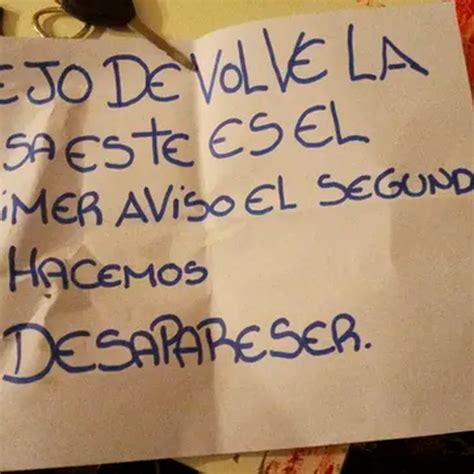 EJO DEVOLVE LA
SA ESTE ES EL
IMER AVISO EL SEGUND
HACEMOS
DESAPARESER.